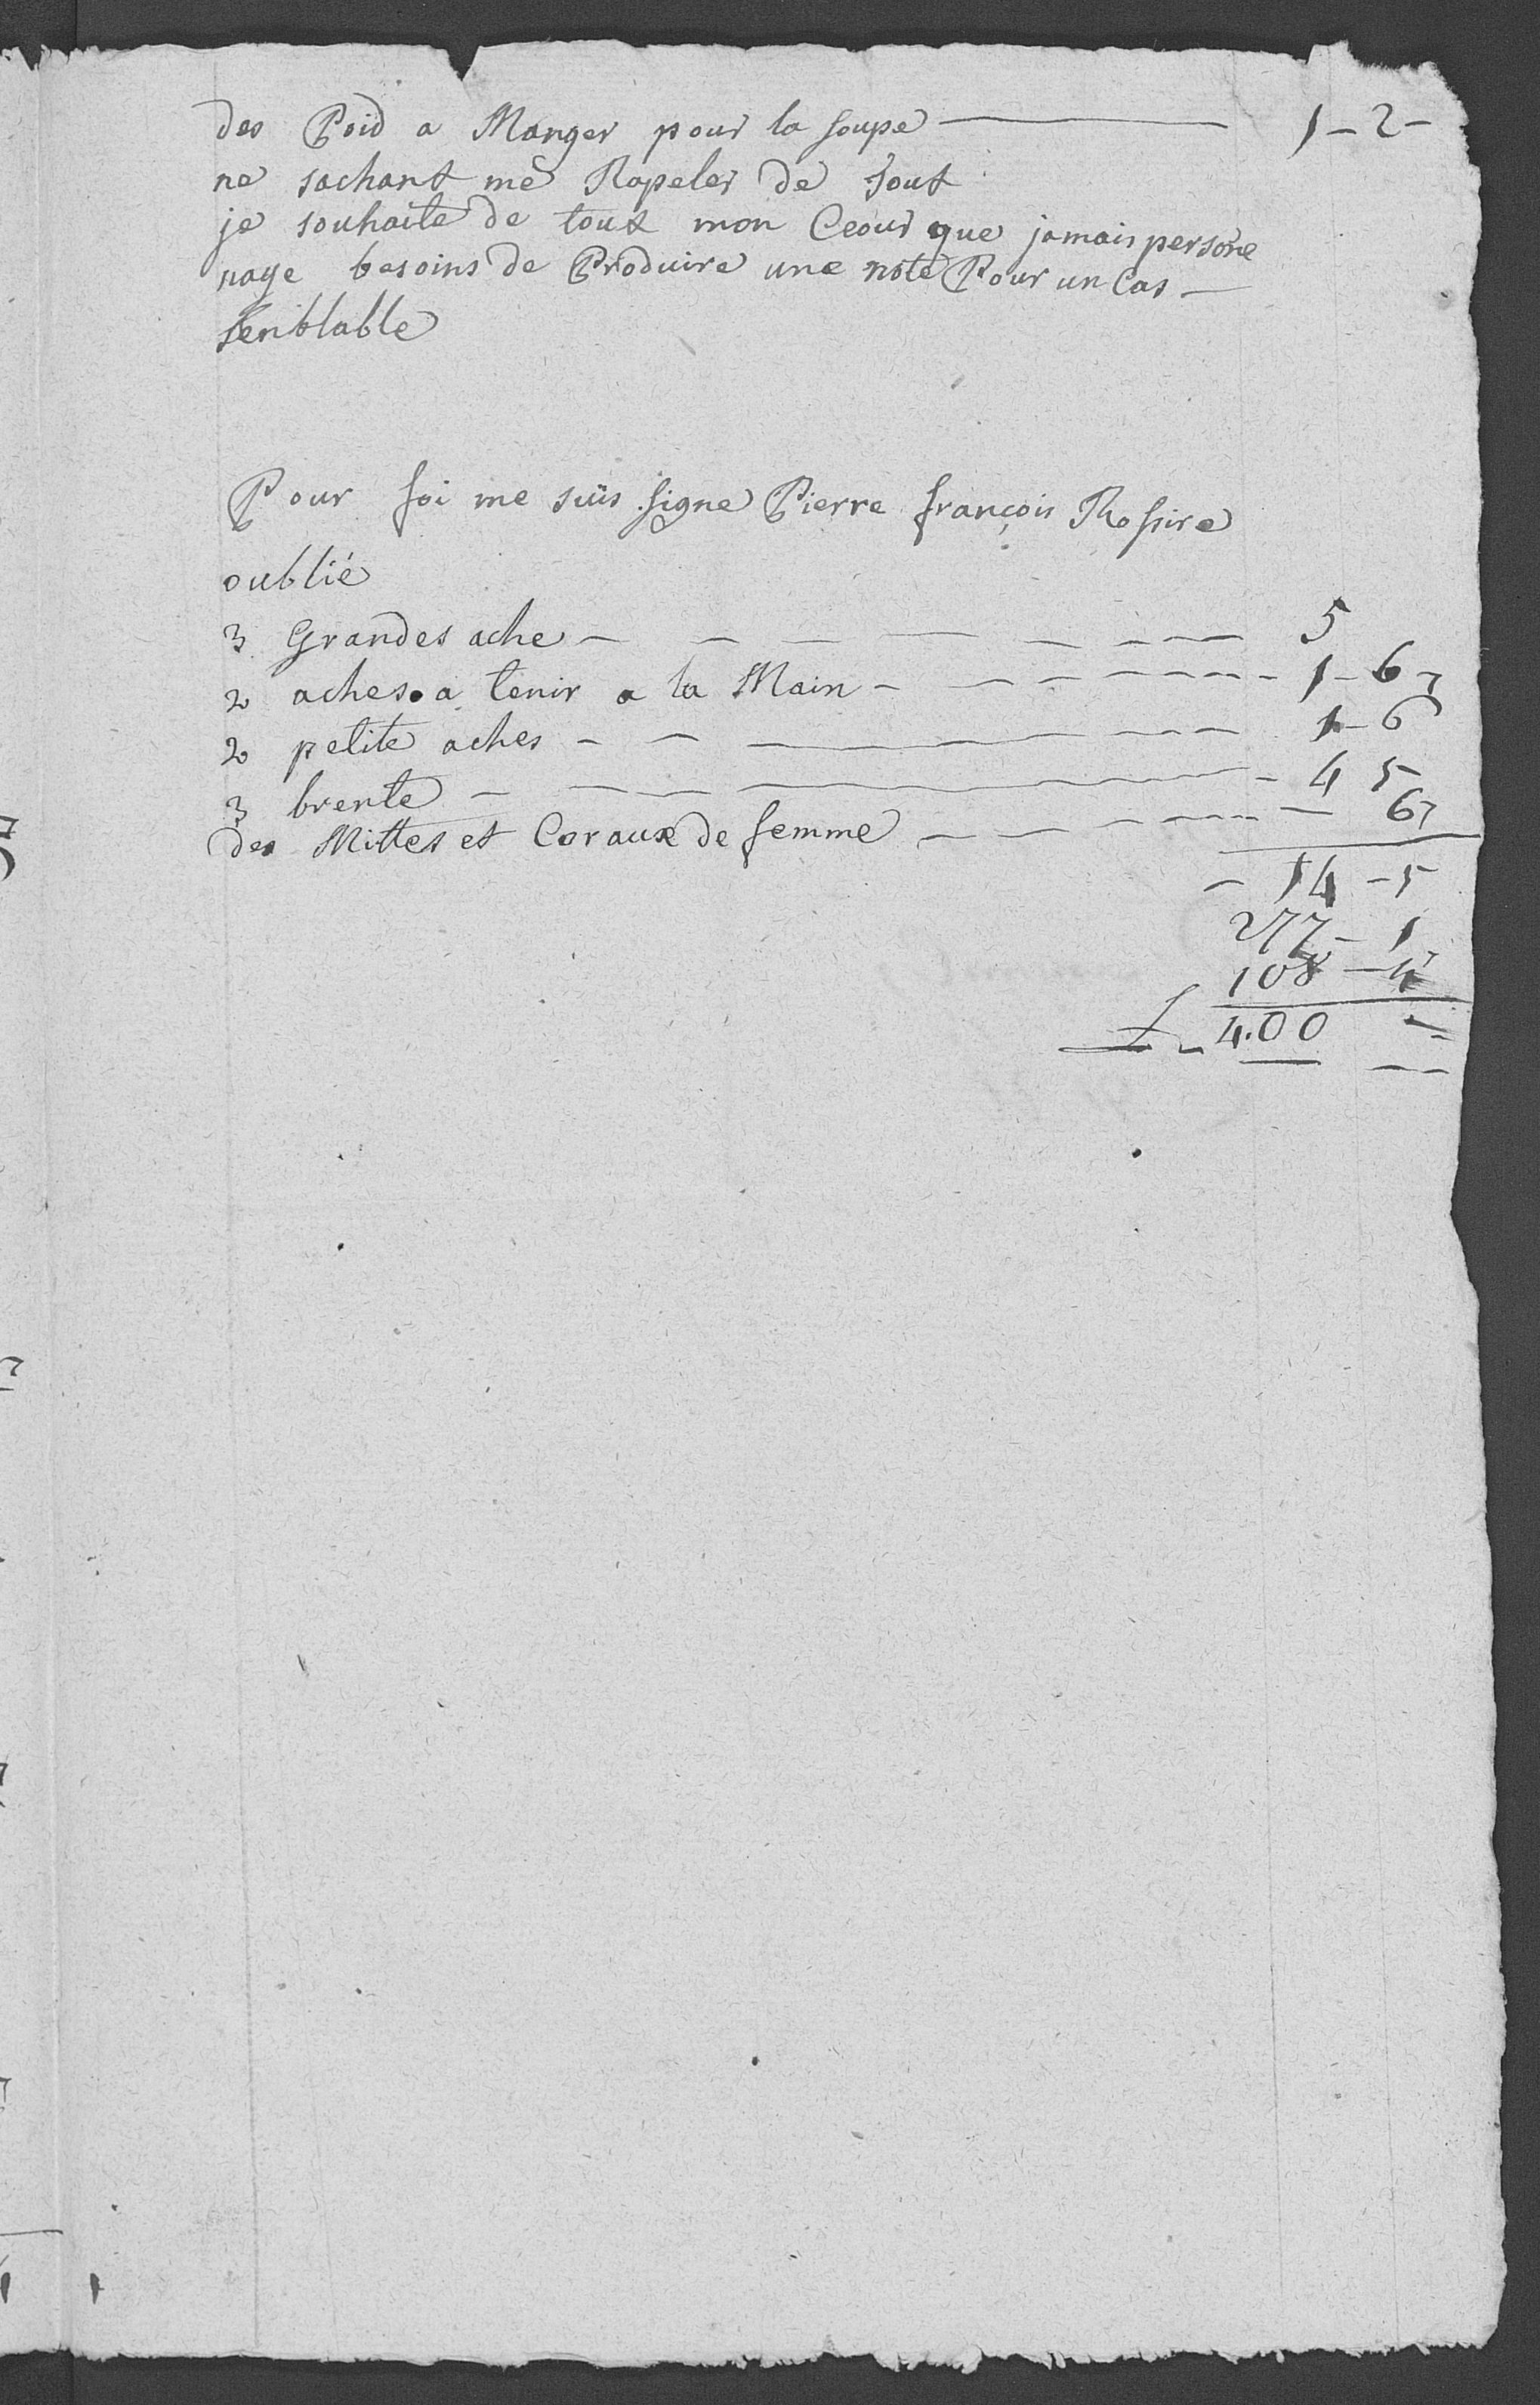 des Poid a Manger pour la soupe — 1 – 2 –
ne sachant me Rapeler de tout
je souhaite de tout mon Ceour que jamais persone
naye besoins de Produire une note Pour un Cas –
senblable
Pour foi me suis signe Pierre françois Rossire
oublié
3 Grandes ache – – – – – – – 5
2 aches a tenir a la Main – – – – – 1 – 6
2 petite aches – – – – – 1 – 6
3 brente – – – – – 4 5
des Mittes et Coraux de femme – – – – – 6
– 14 – 5
277 – 1
108 – 4
L – 400 =